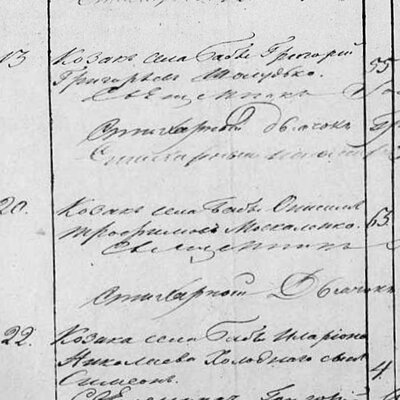 13.
Козакъ села Бабъ Григорій 55
Григорьевъ
Священникъ
Стихарный Дьячокъ
Стихарный
20.
Козакъ села Бабъ Онисимъ 63.
Трофимовъ Москаленко.
Священник
Стихарный Дьячокъ
22.
Козака села Бабъ Иларіона
Николаева Холоднаго сынъ 4.
Симеонъ.
Священникъ Григорій